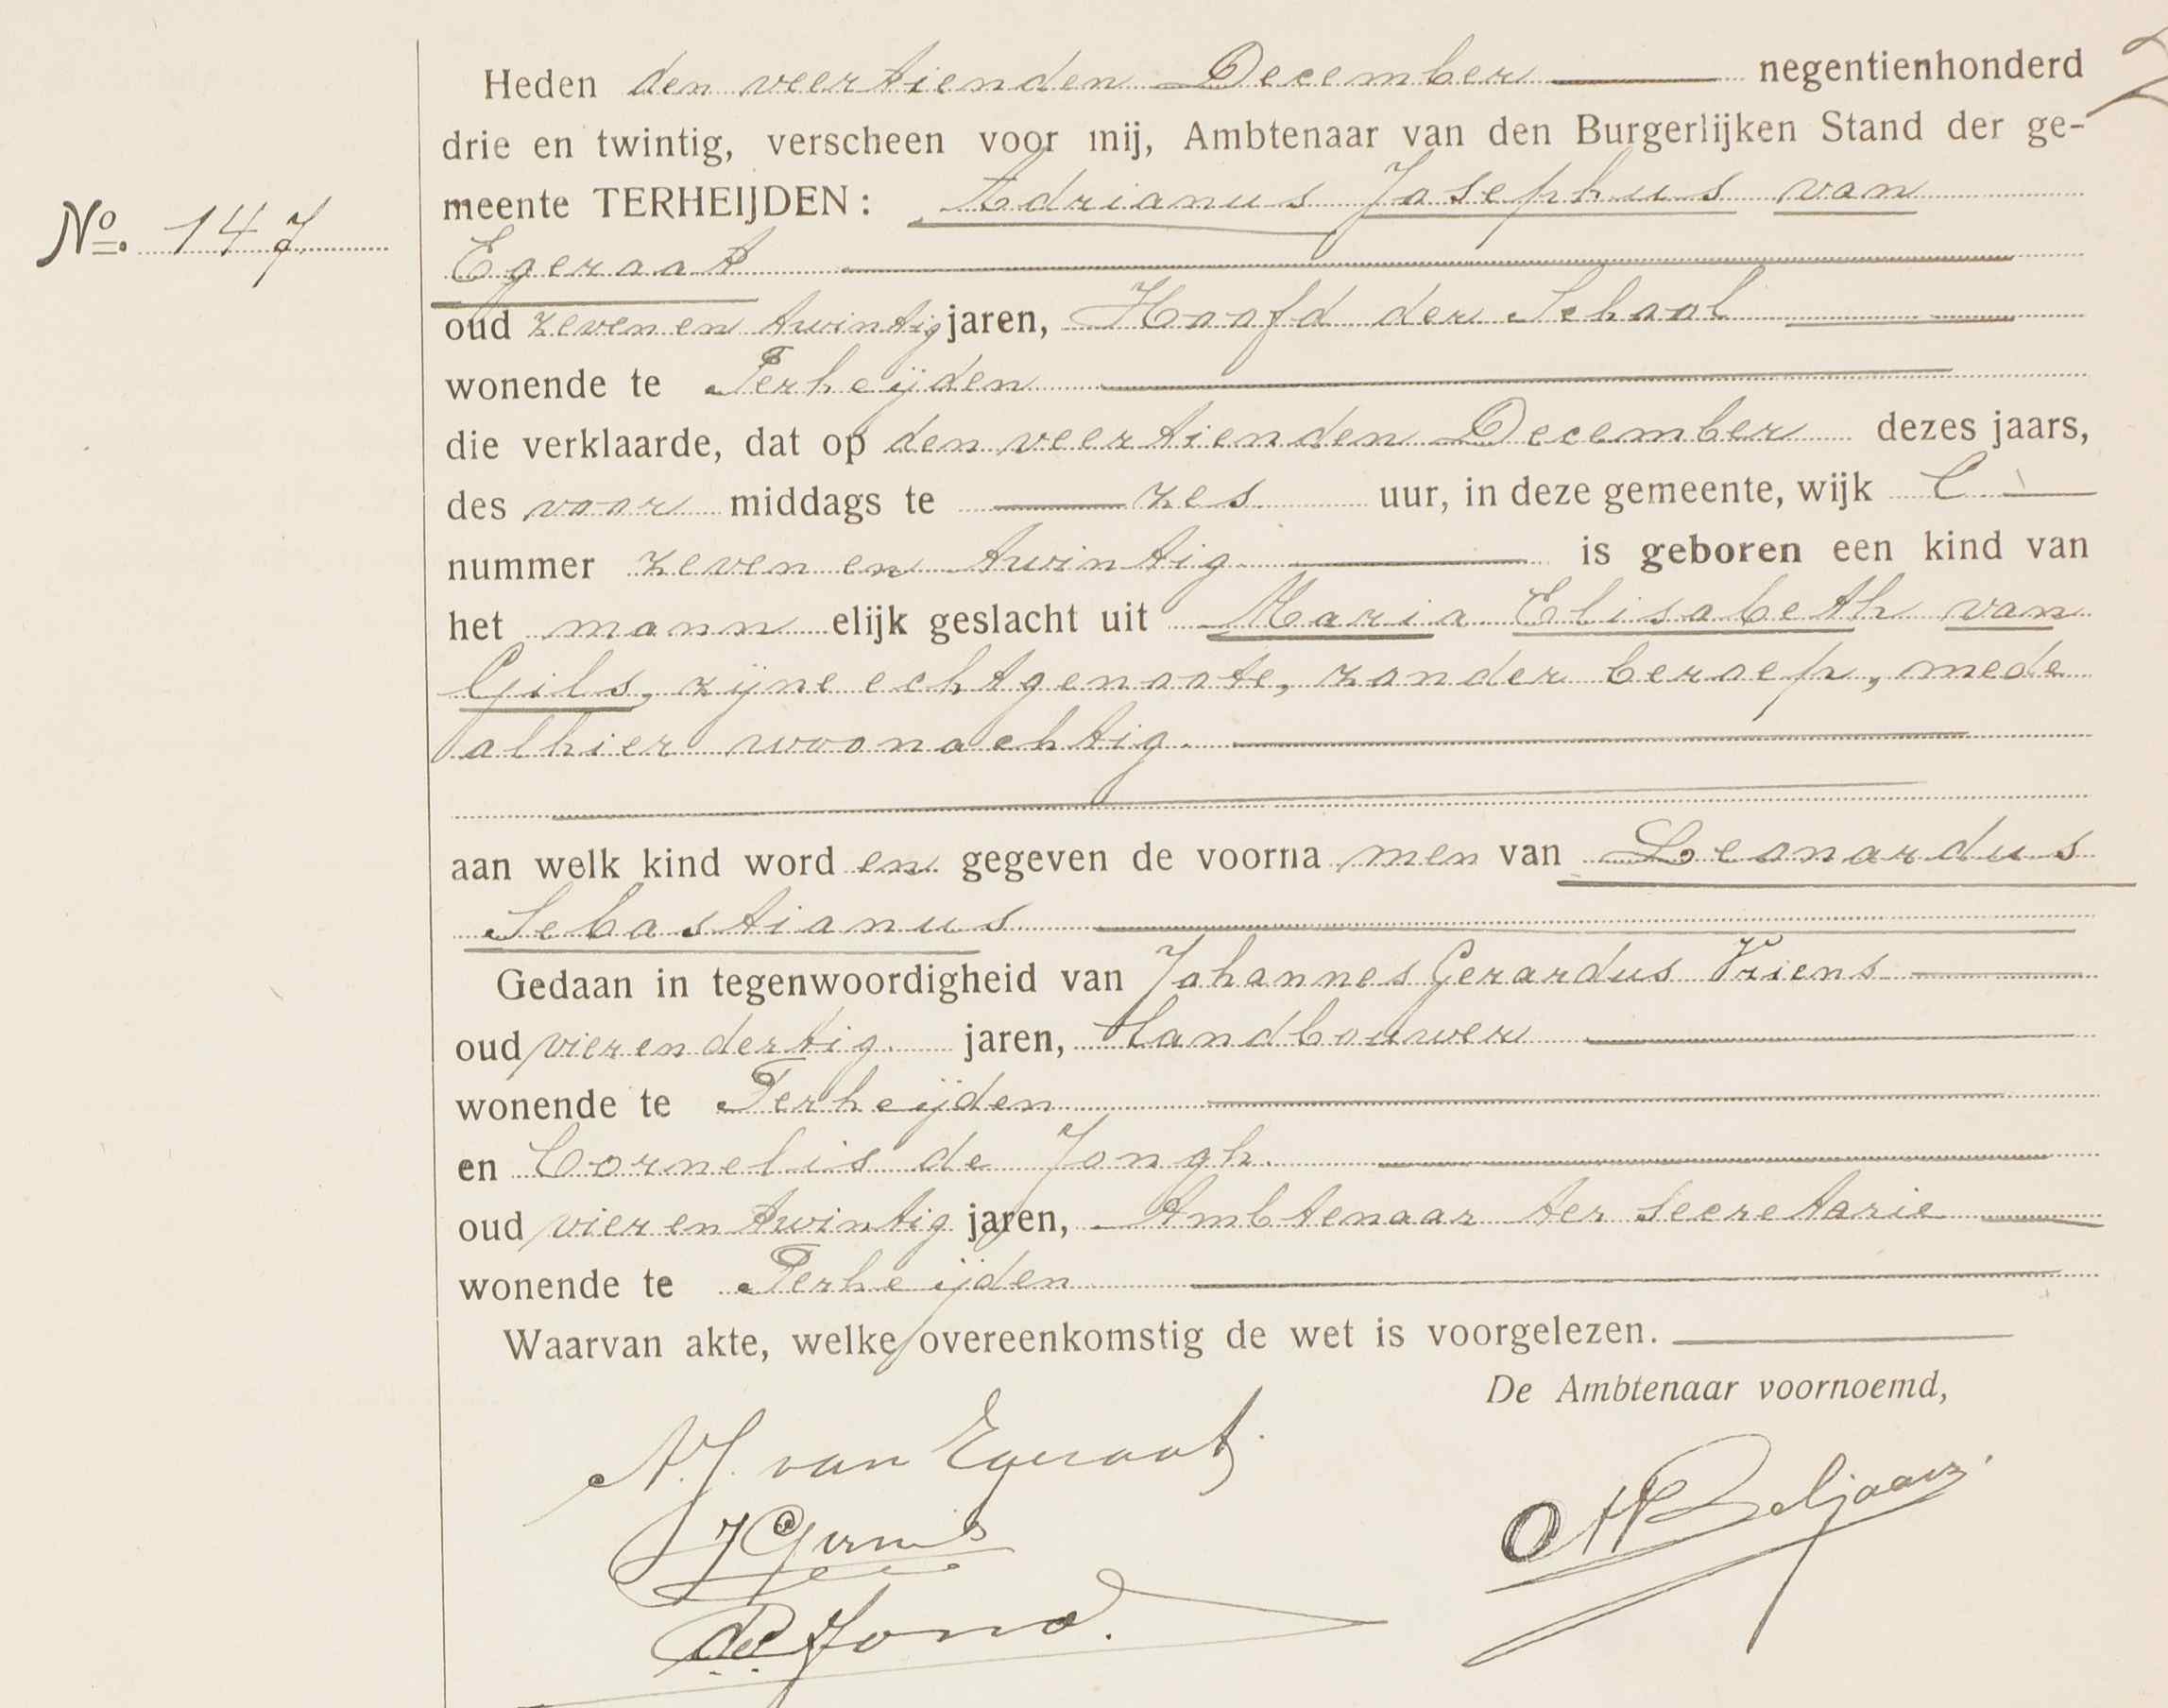 Heden den veertienden December negentienhonderd
drie en twintig, verscheen voor mij, Ambtenaar van den Burgerlijken Stand der ge-
meente TERHEIJDEN: Adrianus Josephus van
No. 147
Egeraat
oud zeven en twintig jaren, Hoofd der School
wonende te Terheijden
die verklaarde, dat op den veertienden December dezes jaars,
des voor middags te zes uur, in deze gemeente, wijk C
nummer zeven en twintig is geboren een kind van
het mann elijk geslacht uit Maria Elisabeth van
Gils, zijne echtgenoote, zonder beroep, mede
alhier woonachtig.
aan welk kind word en gegeven de voorna men van Leonardus
Sebastianus
Gedaan in tegenwoordigheid van Johannes Gerardus Vriens
oud vier en dertig jaren, Landbouwer
wonende te Terheijden
en Cornelis de Jongh
oud vier en twintig jaren, Ambtenaar ter Secretarie
wonende te Terheijden
Waarvan akte, welke overeenkomstig de wet is voorgelezen.
De Ambtenaar voornoemd,
A.J. van Egeraat